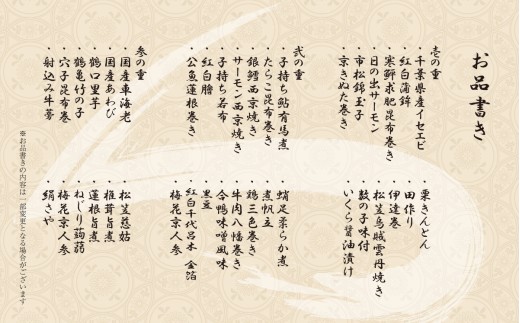 お品書き
壱の重
・千葉県産イセエビ
・紅白蒲鉾
・寒鰤求肥昆布巻き
・日の出サーモン
・市松錦玉子
・京きぬた巻き
・栗きんとん
・田作り
・伊達巻
・松笠烏賊雲丹焼き
・鼓の子味付
・いくら醤油漬け
弐の重
・子持ち鮎有馬煮
・たらこ昆布巻き
・銀鱈西京焼き
・サーモン西京焼き
・子持ち若布
・紅白膾
・公魚蓮根巻き
・蛸足柔らか煮
・煮帆立
・鶏三色巻き
・牛肉八幡巻き
・合鴨味噌風味
・黒豆
・紅白千代呂木 金箔
・梅花京人参
参の重
・国産車海老
・国産あわび
・鶴口里芋
・鶴亀竹の子
・穴子昆布巻
・射込み牛蒡
・松笠慈姑
・椎茸旨煮
・蓮根旨煮
・ねじり蒟蒻
・梅花京人参
・絹さや
※お品書きの内容は一部変更となる場合がございます